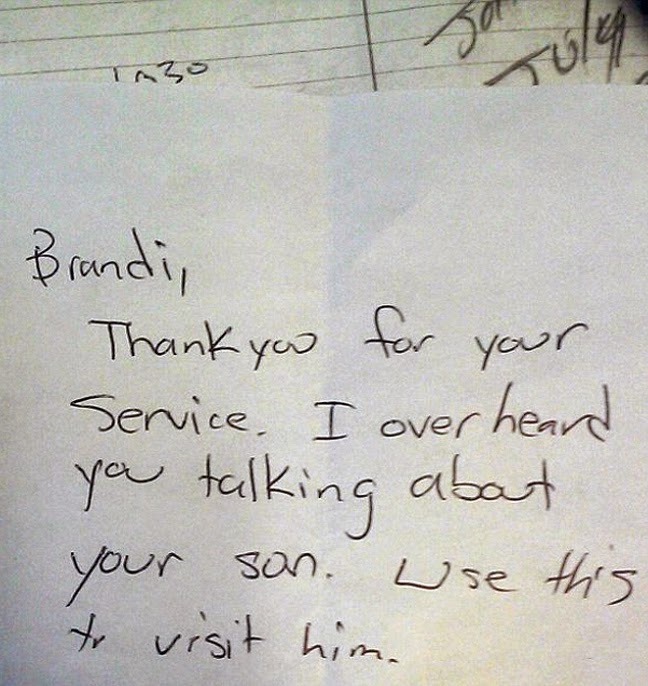 July
Brandi,
Thank you for your
Service. I overheard
you talking about
your son. Use this
to visit him.